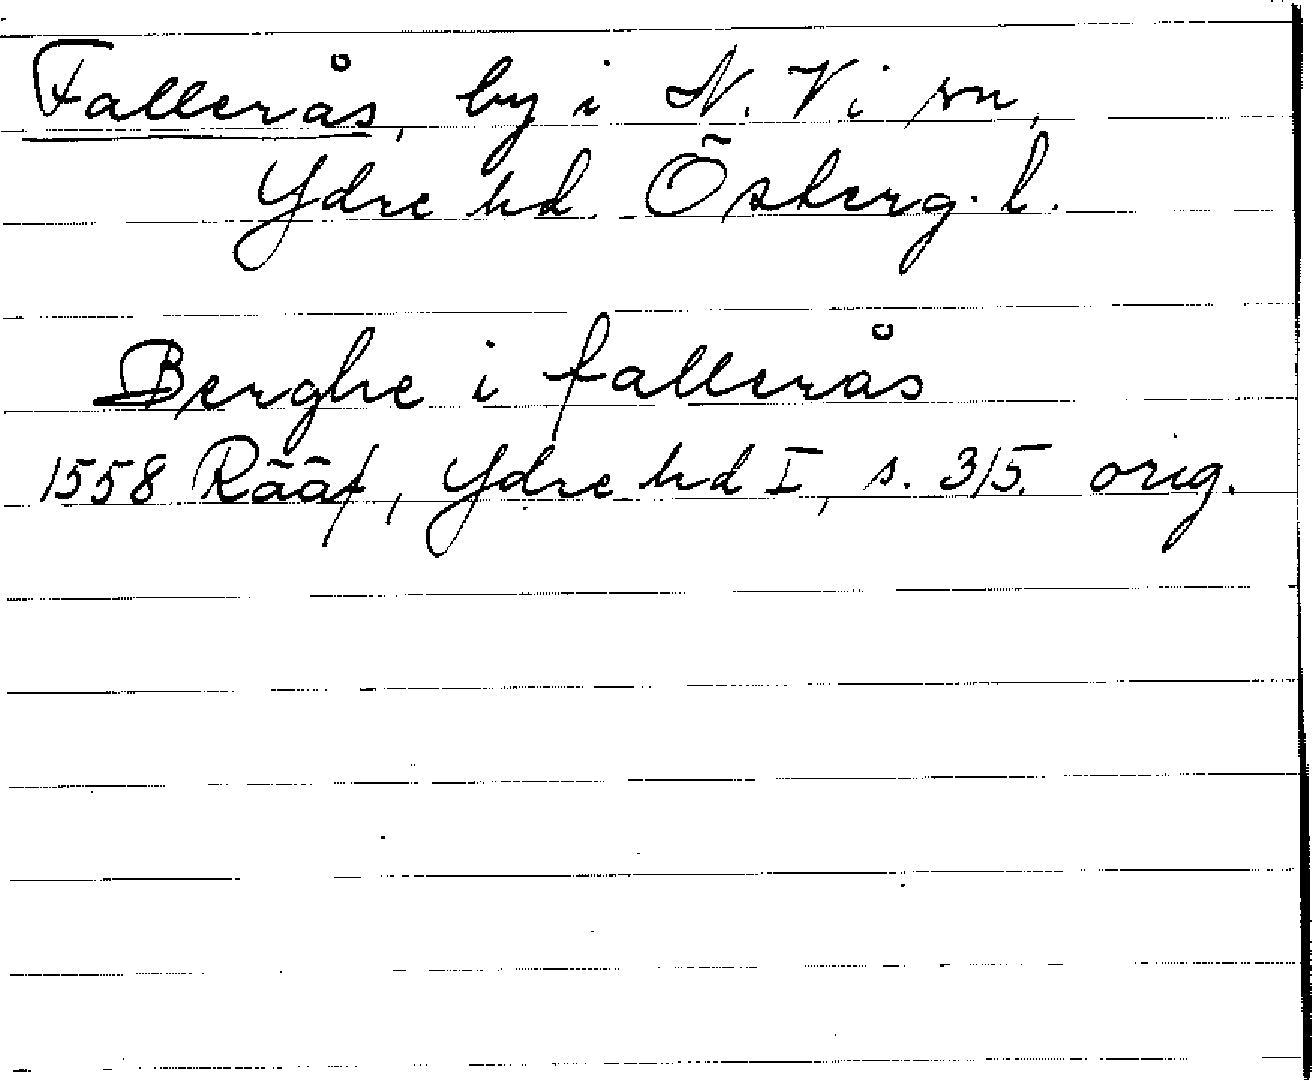 Fallerås, by i N. Vi sn,
Ydre hd. Östergl.
Berghe i fallerås
1558 Rääf, Ydre hd I, s. 315. orig.